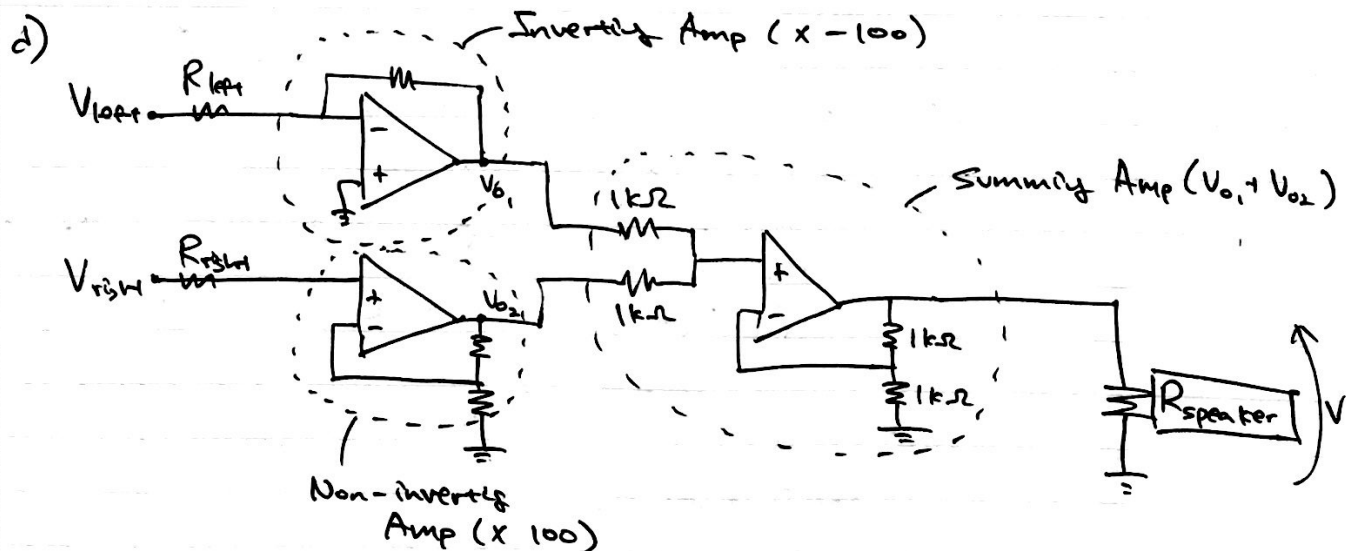 d)
Inverting Amp (x -100)
Rleft
Vleft
-
+
Vo1
1kΩ
Summing Amp (Vo1 + Vo2)
Rright
Vright
+
-
Vo2
1kΩ
+
-
1kΩ
1kΩ
Rspeaker
V
Non-inverting
Amp (x 100)